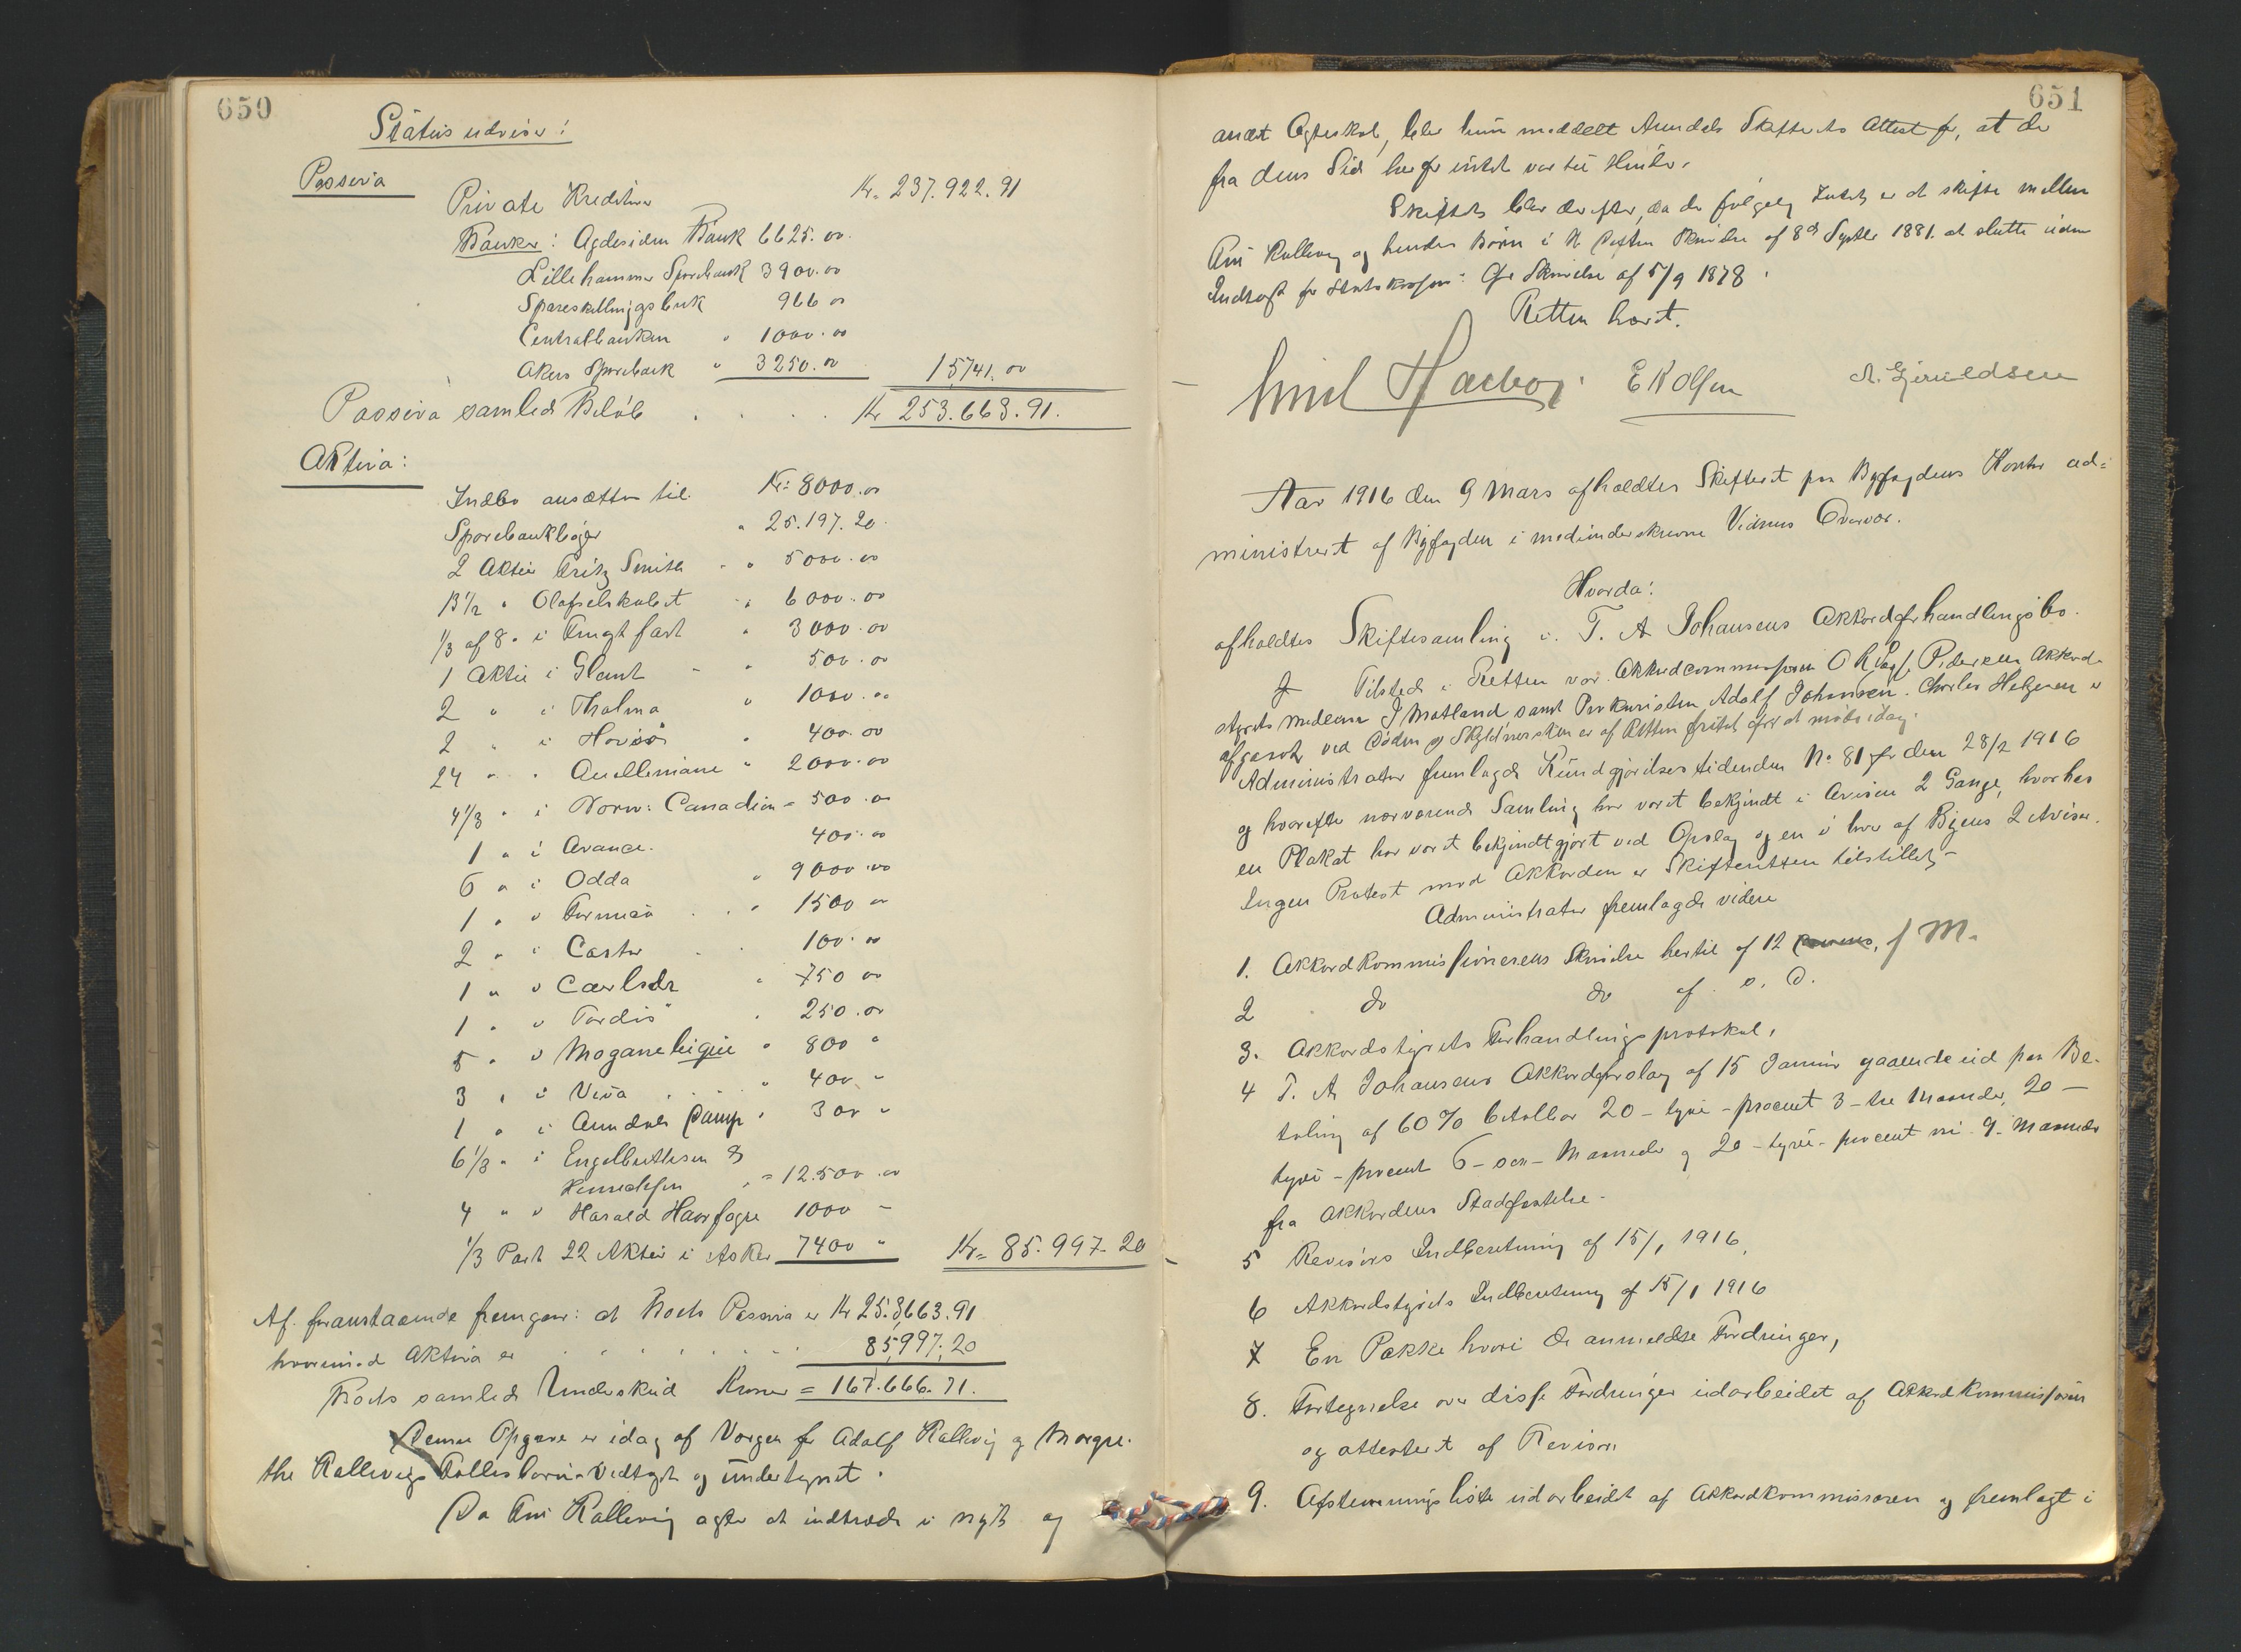 650
Status udviser:
Passiva
Private Kreditorer Kr. 237.922.91
Banker: Agdesiden Bank 6625.00
Lillehammer Sparebank 3900.00
Spareskillingsbank 966 00
Centralbanken " 1000.00
Akers Sparebank " 3250.00 15741.00
Passiva samlede Beløb . . . . Kr 253.663.91.
Aktiva:
Indbo ansættes til Kr: 8000.00
Sparebankbøger " 25.197.20
2 Aktier Fritz Smith " " 5000.00
13 1/2 " Olafselskabet " " 6000.00
1/3 af 8 " i Fragtfart " 3000.00
1 Aktie i Glant - " 500.00
2 " i Thalma " 1000.00
2 " i Havöö " 400.00
24 " " 2000.00
4 1/3 " i Norw: Canadian = 500.00
1 " i Avance. 400.00
6 " i Odda " 9000.00
1 " " . . " 1500 00
2 " i Castor . 100.00
1 " " " 750 00
1 " " Tordis " 250.00
5 " " " 800 "
3 " i Viva . . . " 400 -
1 " i Arendals Damp " 300 "
6 1/3 " i Engelbrethsen &
" = 12.500.00
4 " " Harald Haarfagre 1000 -
1/3 Part 22 Aktier i Asker 7400 " Kr= 85.997.20
Af foranstaaende fremgaar: at Boets Passiva er Kr 253,663.91
hvorimod Aktiva er . . . . . . . 85,997.20
Boets samlede Underskud Kroner = 167.666.71.
Denne Opgave er idag af Vergen for Adolf Kallevig og Margre-
the Kallevigs Fællesbarn vedtaget og undertegnet.
Da Kallevig agter at indtræde i nyt og
651
andet Ægteskab, blev hun meddelt Arendals Skifterets Attest for, at der
fra dens Side herfor intet var til Hinder.
Skiftet blev derefter, da der følgelig Intet er at skifte mellem
Kallevig og hendes Børn i H. Skrivelse af 8de Septbr 1881. at slutte uden
Indtægt for Statskassen: Cfr Skrivelse af 5/9 1878.
Retten hævet.
E K Olsen
Aar 1916 den 9 Mars afholdtes Skifteret paa Byfogdens Kontor ad-
ministreret af Byfogden i medunderskrevne Vidners Overvær.
Hvorda:
afholdtes Skiftesamling i T. A Johansens Akkordforhandlingsbo.
Tilstede i Retten var Akkordcommissæren O R Pedersen Akkord-
styrets medlem J Matland samt Prokuristen Adolf Johansen. Charles Helgesen er
afgaaet ved Døden og Skyldnersken er af Retten fritat for at møde idag.
Administrator fremlagde Kundgjørelsestidenden No 81 for den 28/2 1916
og hvorefter nærværende Samling har været bekjendt i Avisen 2 Gange, hvorhos
en Plakat har været bekjendtgjort ved Opslag og en i hver af Byens 2 Aviser.
Ingen Protest mod Akkorden er Skifteretten tilstillet -
Administrator fremlagde videre
1. Akkordkommissærens Skrivelse hertil af 12 f M.
2 do do af s. D.
3. Akkordstyrets Forhandlingsprotokol,
4 T. A Johansens Akkordforslag af 15 Januar gaaende ud paa Be-
taling af 60% betalbar 20 - tyve - procent 3 - tre Maaneder, 20 -
tyve - procent 6 - sex - Maaneder og 20 - tyve - procent ni 9. Maaneder
fra Akkordens Stadfæstelse.
5 Revisors Indberetning af 15/1 1916,
6 Akkordstyrets Indberetning af 15/1 1916
7 En Pakke hvori de anmeldte Fordringer,
8. Fortegnelse over disse Fordringer udarbeidet af Akkordkommissæren
og attesteret af Revisor
9. Afstemningsliste udarbeidet af Akkordkommissæren og fremlagt i